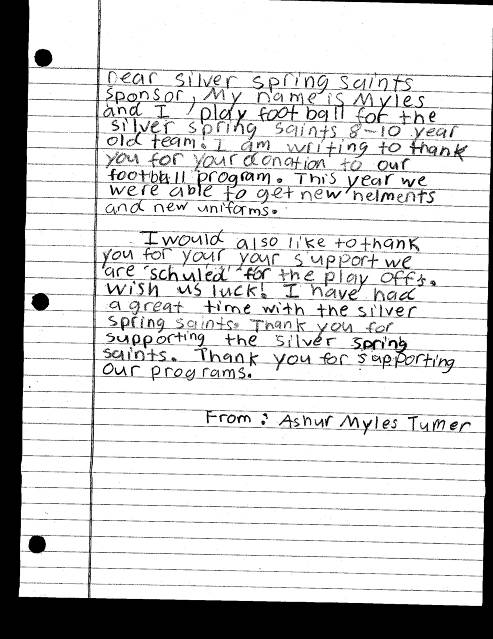 Dear silver spring saints
sponsor, My name is Myles
and I play football for the
silver spring saints 8-10 year
old team! I am writing to thank
you for your donation to our
football program. This year we
were able to get new helments
and new uniforms.
I would also like to thank
you for your your support we
are "schuled" for the play offs.
Wish us luck! I have had
a great time with the silver
spring saints. Thank you for
supporting the silver spring
saints. Thank you for supporting
our programs.
From: Ashur Myles Turner